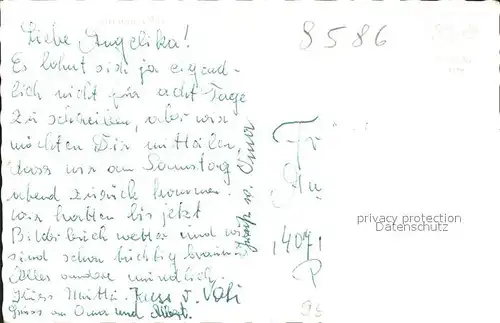 Liebe Angelika!
8586
Es lohnt sich ja eigend-
lich nicht für acht Tage
zu schreiben, aber wir
möchten Dir mitteilen,
dass wir am Samstag
abend zurück kommen.
Wir hatten bis jetzt
Bilderbuch wetter und wir
sind schon tüchtig braun.
Alles andere mündlich.
Gruss Mutti. v. Vati
Gruss an Oma und
Gruß v. Oma
Fr
privacy protection
Datenschutz
4071
P